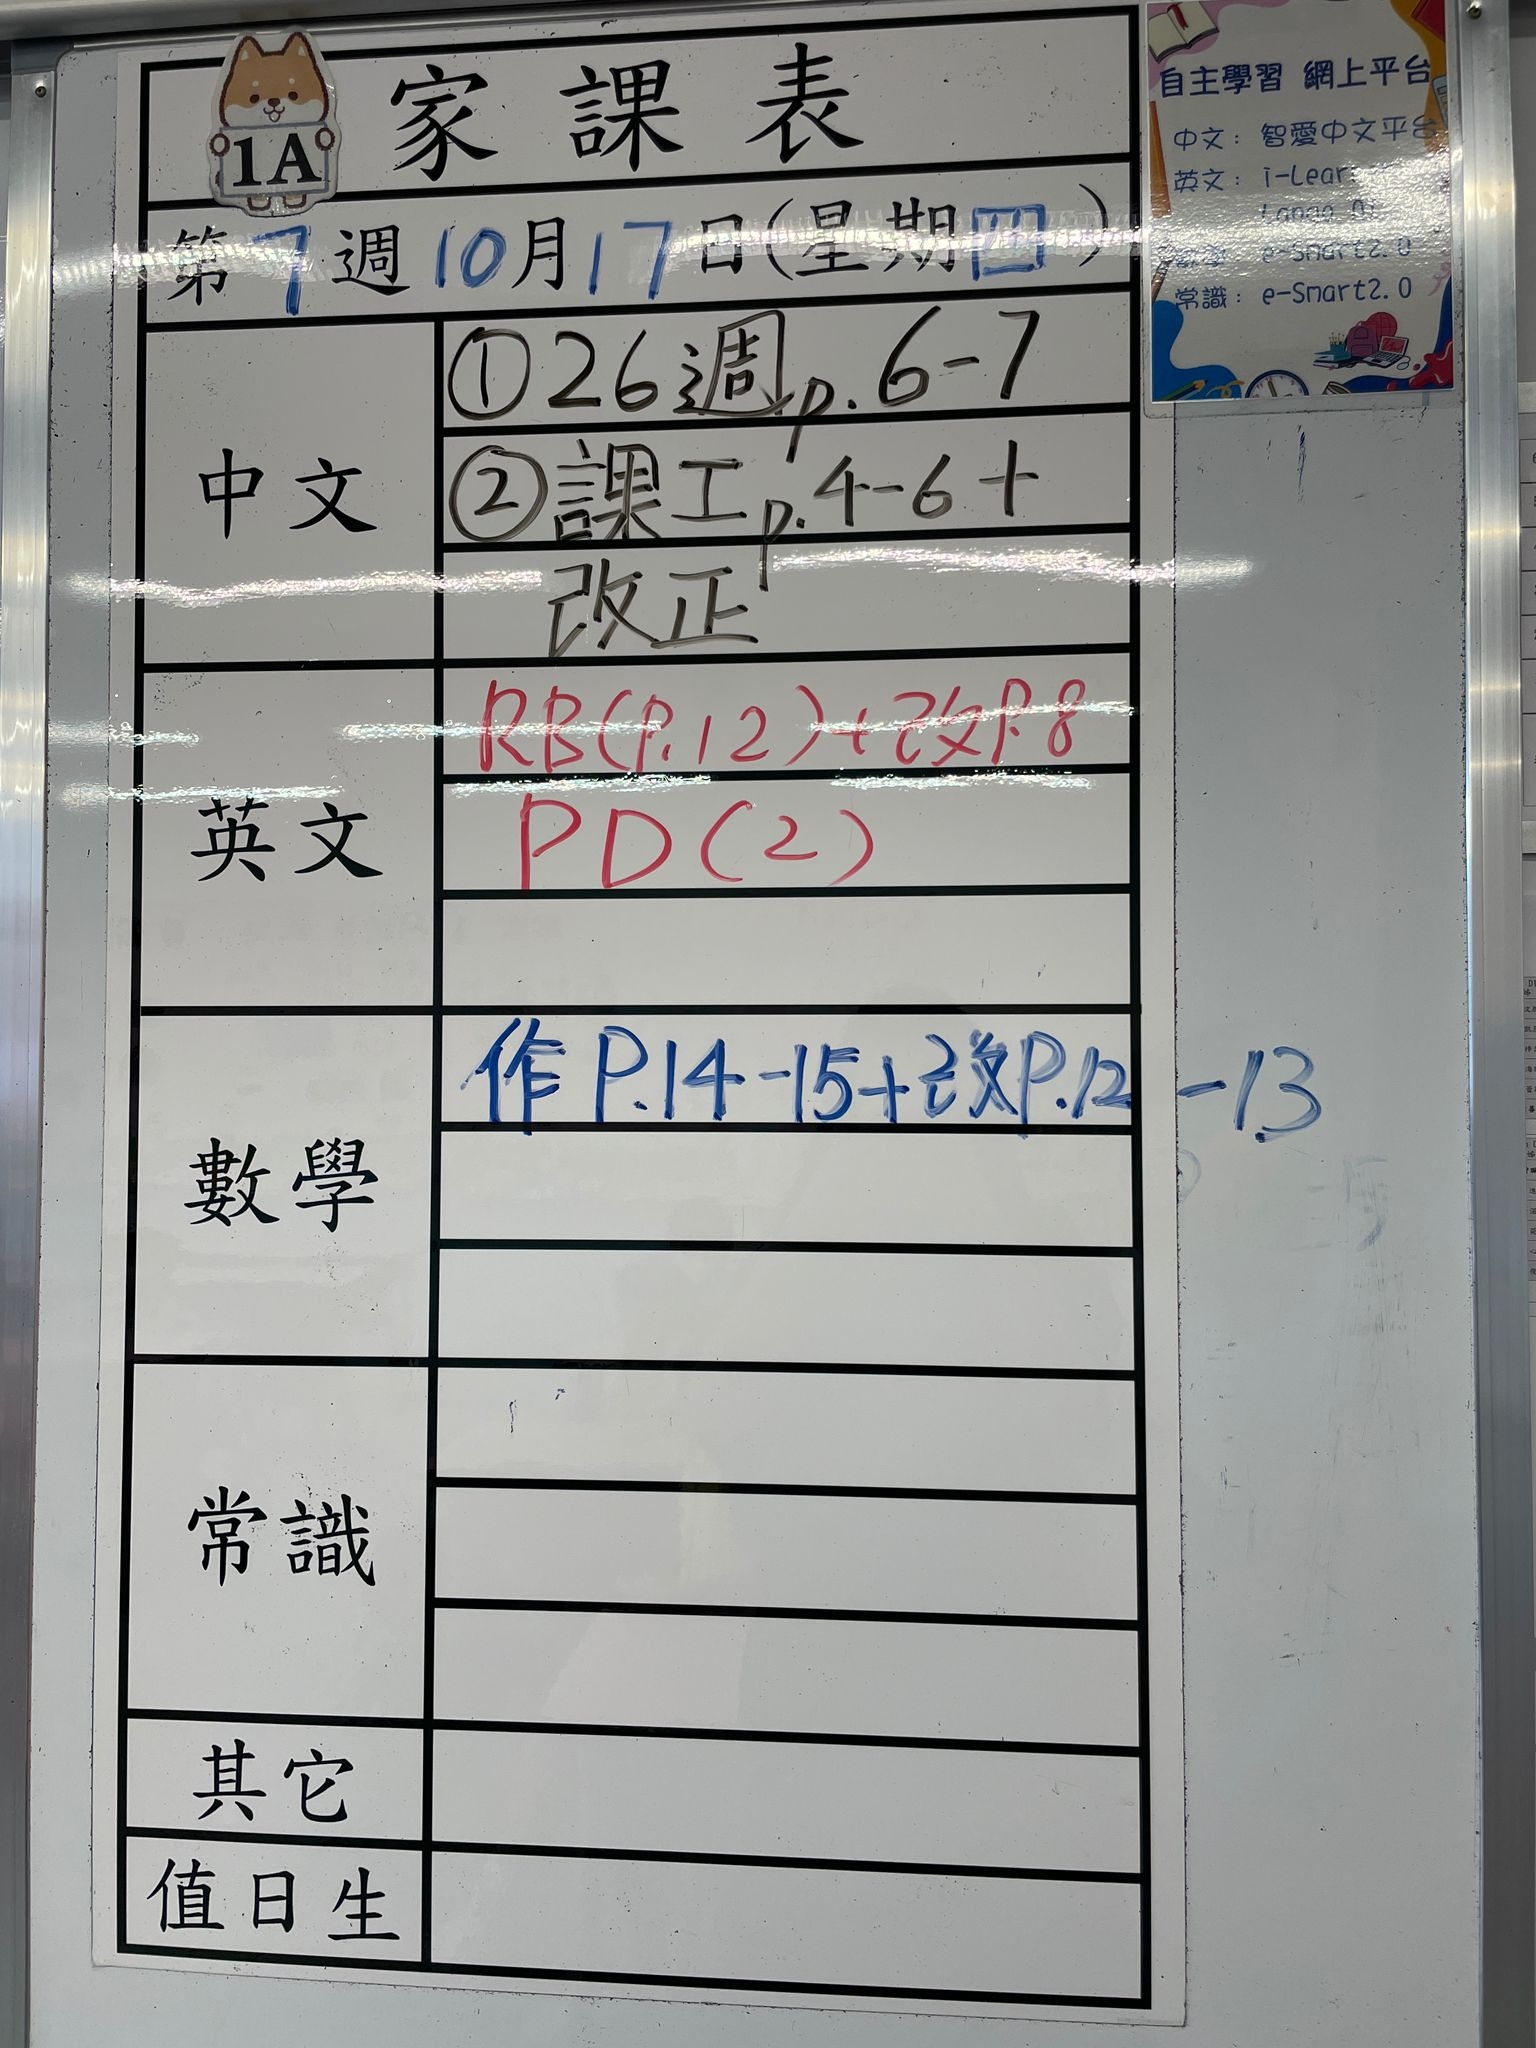 1A 家課表
第7週10月17日(星期四)
中文
①26週p.6-7
②課工p.4-6+
改正
英文
RB(P.12)+改P.8
PD(2)
數學
作P.14-15+改P.12-13
常識
其它
值日生
自主學習 網上平台
中文：智愛中文平台
英文：i-Lear
e-Smart2.0
常識：e-Smart2.0